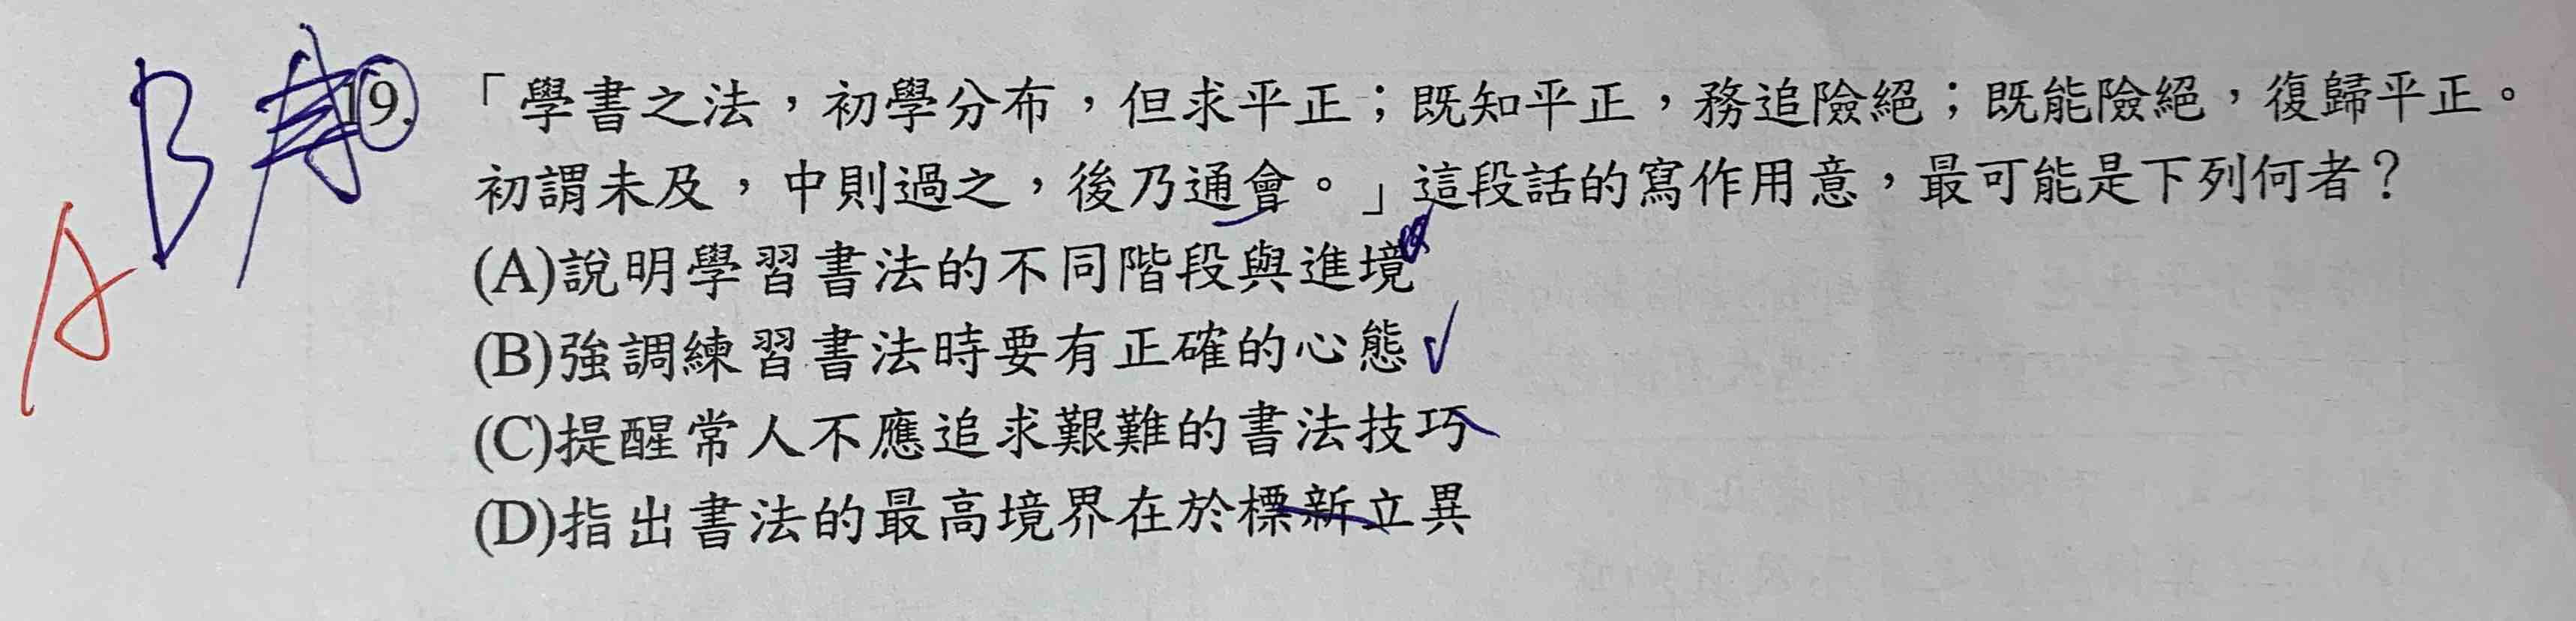 B
A
19. 「學書之法，初學分布，但求平正；既知平正，務追險絕；既能險絕，復歸平正。
初謂未及，中則過之，後乃通會。」這段話的寫作用意，最可能是下列何者？
(A)說明學習書法的不同階段與進境
(B)強調練習書法時要有正確的心態✓
(C)提醒常人不應追求艱難的書法技巧
(D)指出書法的最高境界在於標新立異